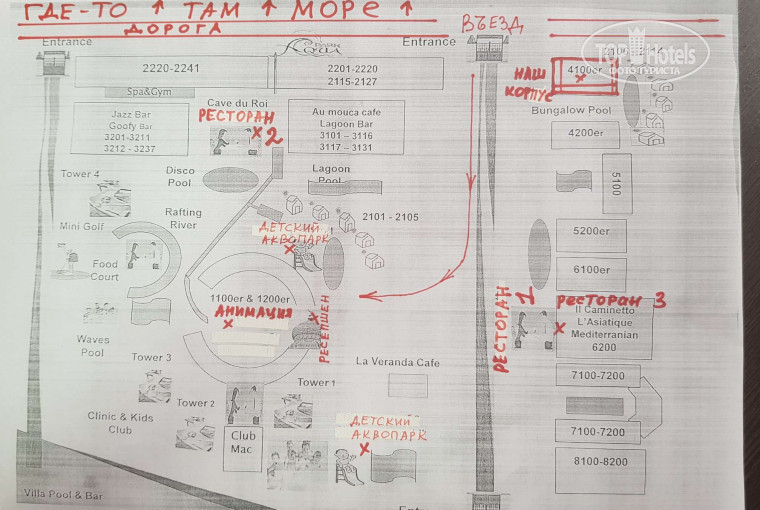 ГДЕ-ТО ↑ ТАМ ↑ МОРЕ ↑
ДОРОГА
ВЪЕЗД
Entrance
Entrance
TopHotels
ФОТО ТУРИСТА
2220-2241
2201-2220
2115-2127
НАШ
КОРПУС
4100er
Spa&Gym
Bungalow Pool
Jazz Bar
Goofy Bar
3201-3211
3212 - 3237
Cave du Roi
РЕСТОРАН
2
Au mouca cafe
Lagoon Bar
3101 – 3116
3117 – 3131
4200er
Tower 4
Disco
Pool
Lagoon
Pool
5100
Mini Golf
Rafting
River
2101 - 2105
ДЕТСКИЙ
АКВОПАРК
5200er
Food
Court
6100er
1100er & 1200er
АНИМАЦИЯ
РЕСЕПШЕН
РЕСТОРАН 1
РЕСТОРАН 3
Il Caminetto
L'Asiatique
Mediterranian
6200
Waves
Pool
Tower 3
La Veranda Cafe
7100-7200
Tower 1
Tower 2
Clinic & Kids
Club
Club
Mac
ДЕТСКИЙ
АКВОПАРК
7100-7200
8100-8200
Villa Pool & Bar